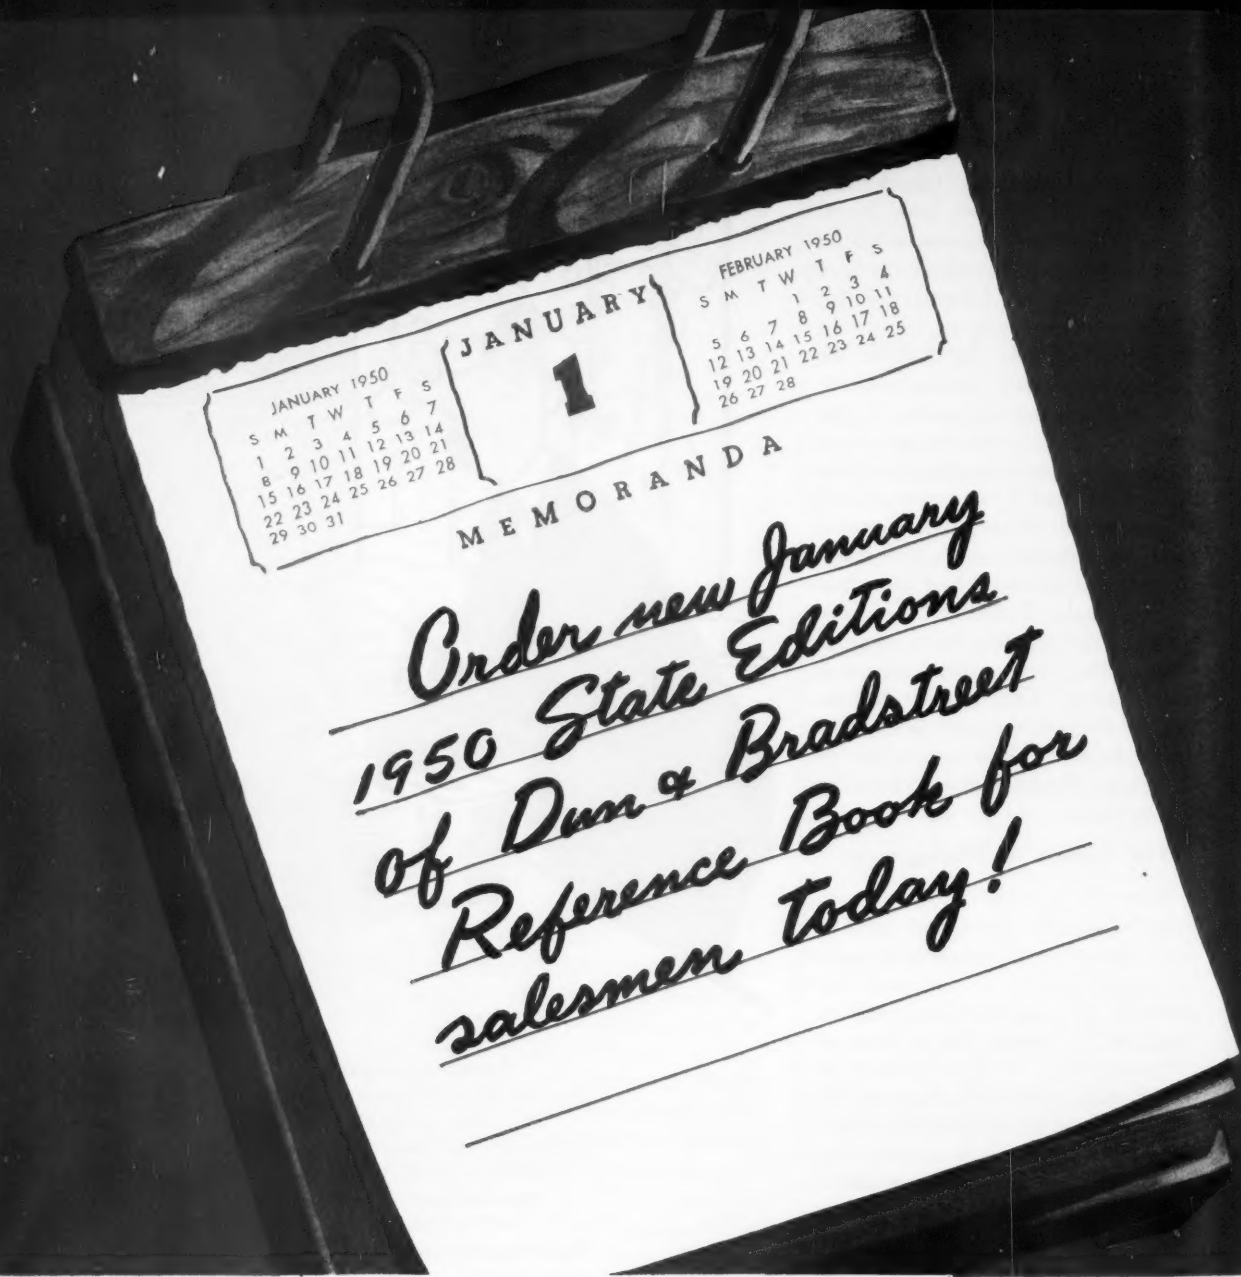 JANUARY 1950
S M T W T F S
1 2 3 4 5 6 7
8 9 10 11 12 13 14
15 16 17 18 19 20 21
22 23 24 25 26 27 28
29 30 31
JANUARY
1
FEBRUARY 1950
S M T W T F S
1 2 3 4
5 6 7 8 9 10 11
12 13 14 15 16 17 18
19 20 21 22 23 24 25
26 27 28
MEMORANDA
Order new January
1950 State Editions
of Dun & Bradstreet
Reference Book for
salesmen today!